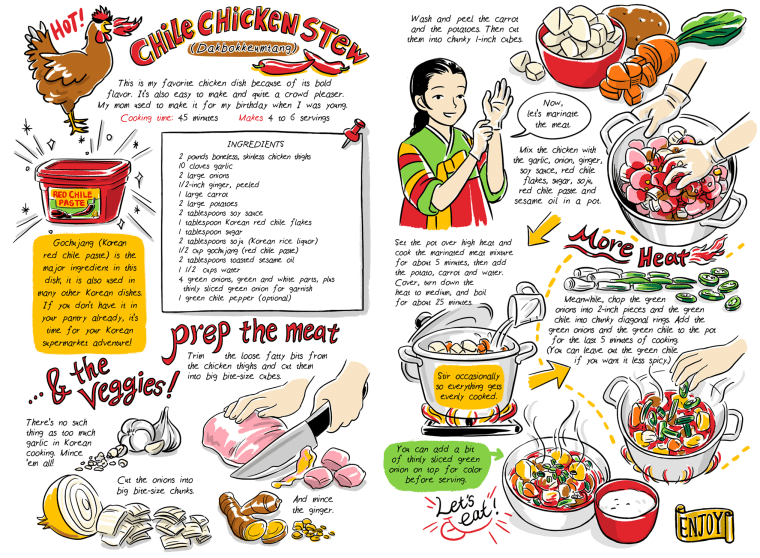 HOT!
CHILE CHICKEN STEW
(Dakbokkeumtang)
This is my favorite chicken dish because of its bold
flavor. It's also easy to make and quite a crowd pleaser.
My mom used to make it for my birthday when I was young.
Cooking time: 45 minutes Makes 4 to 6 servings
RED CHILE
PASTE
Gochujang (Korean
red chile paste) is the
major ingredient in this
dish; it is also used in
many other Korean dishes.
If you don't have it in
your pantry already, it's
time for your Korean
supermarket adventure!
INGREDIENTS
2 pounds boneless, skinless chicken thighs
10 cloves garlic
2 large onions
1/2-inch ginger, peeled
1 large carrot
2 large potatoes
2 tablespoons soy sauce
1 tablespoon Korean red chile flakes
1 tablespoon sugar
2 tablespoons soju (Korean rice liquor)
1/2 cup gochujang (red chile paste)
2 tablespoons toasted sesame oil
1 1/2 cups water
4 green onions, green and white parts, plus
thinly sliced green onion for garnish
1 green chile pepper (optional)
prep the meat
Trim the loose fatty bits from
the chicken thighs and cut them
into big bite-size cubes.
...& the
veggies!
There's no such
thing as too much
garlic in Korean
cooking. Mince
'em all!
Cut the onions into
big bite-size chunks.
And mince
the ginger.
Wash and peel the carrot
and the potatoes. Then cut
them into chunky 1-inch cubes.
Now,
let's marinate
the meat.
Mix the chicken with
the garlic, onion, ginger,
soy sauce, red chile
flakes, sugar, soju,
red chile paste and
sesame oil in a pot.
Set the pot over high heat and
cook the marinated meat mixture
for about 5 minutes, then add
the potato, carrot and water.
Cover, turn down the
heat to medium, and boil
for about 25 minutes.
Stir occasionally
so everything gets
evenly cooked.
More Heat
Meanwhile, chop the green
onions into 2-inch pieces and the green
chile into chunky diagonal rings. Add the
green onions and the green chile to the pot
for the last 5 minutes of cooking.
(You can leave out the green chile
if you want it less spicy.)
You can add a bit
of thinly sliced green
onion on top for color
before serving.
Let's
eat!
ENJOY!